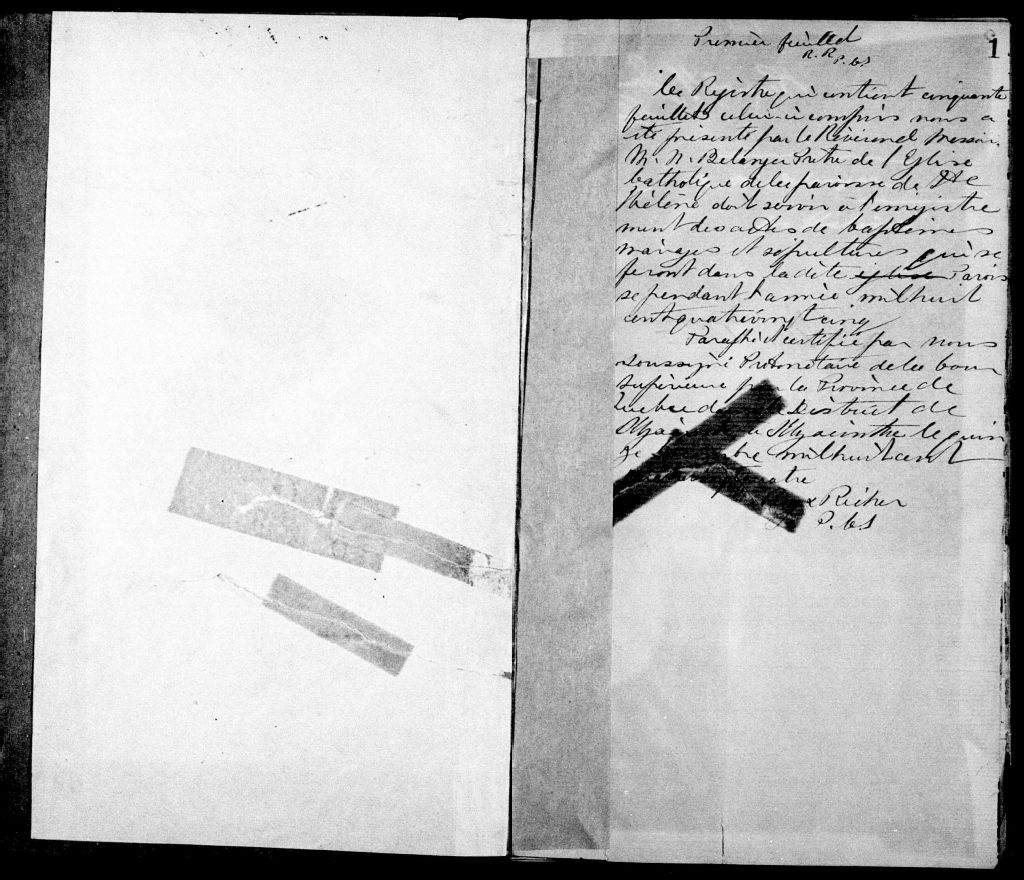 Premier feuillet
R. R. P. C. S
1
Ce Registre qui contient cinquante
feuillets celui-ci compris nous a
été présenté par le Révérend Messire
M. N. Belanger Prêtre de l'Eglise
Catholique de la paroisse de Ste
Hélène doit servir à l'enregistre
ment des actes de baptêmes
mariages et sépultures qui se
feront dans la dite eglise Parois
se pendant l'année mil huit
cent quatrevingt cinq
Paraphé et certifié par nous
soussigné Protonotaire de la Cour
Supérieure pour la Province de
Quebec District de
St Hyacinthe le quin
ze mil huit cent
quatre
Richer
P. C. S